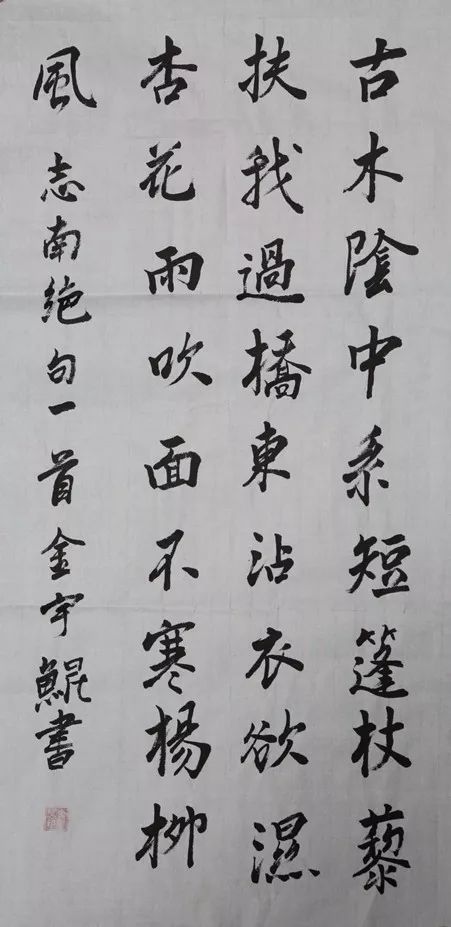 古木陰中系短篷杖藜
扶我過橋東沾衣欲濕
杏花雨吹面不寒楊柳
風 志南絶句一首金宇鯤書